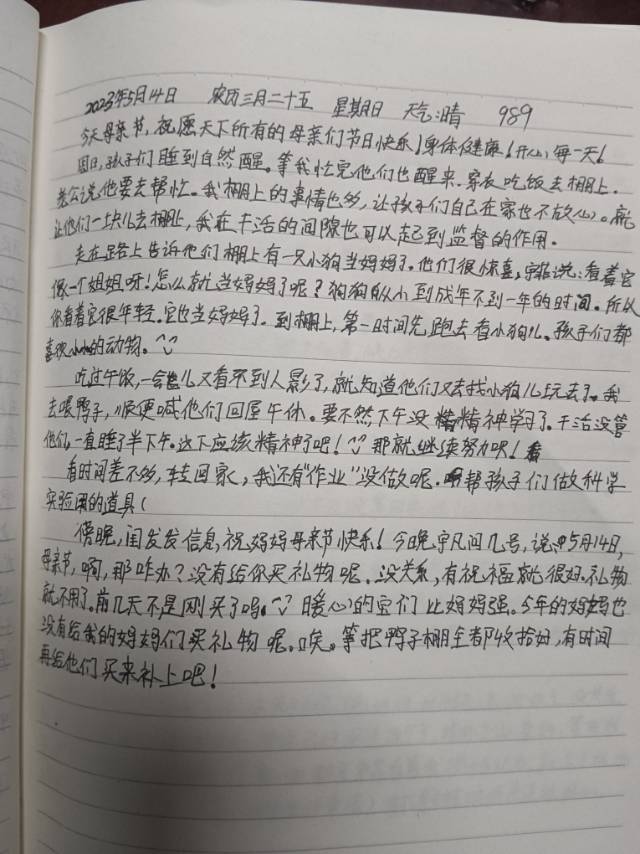 2023年5月14日 农历三月二十五 星期日 天气:晴 989
今天母亲节,祝愿天下所有的母亲们节日快乐!身体健康!开心每一天!
周日,孩子们睡到自然醒。等我忙完他们也醒来.家衣吃饭去棚上.
老公说他要去帮忙。我棚上的事情也多,让孩子们自己在家也不放心。就
让他们一块儿去棚上,我在干活的间隙也可以起到监督的作用。
走在路上告诉他们棚上有一只小狗当妈妈了。他们很惊喜,宇铭说:看着它
像一个姐姐呀!怎么就当妈妈了呢?狗狗从小到成年不到一年的时间。所以
你看着它很年轻.它也当妈妈了.到棚上,第一时间先跑去看小狗儿。孩子们都
喜欢小小的动物。
吃过午饭,一会儿又看不到人影了,就知道他们又去找小狗儿玩去了。我
去喂鸭子,顺便喊他们回屋午休。要不然下午没精神学习了.干活没管
他们,一直睡了半下午。这下应该精神了吧!那就继续努力呗!
看时间差不多,转回家,我还有“作业”没做呢.帮孩子们做科学
实验用的道具(
傍晚,闺女发信息,祝妈妈母亲节快乐!今晚宇凡问几号,说5月14日,
母亲节,啊,那咋办?没有给你买礼物呢.没关系,有祝福就很好.礼物
就不用了。前几天不是刚买了吗。暖心的宝们比妈妈强。5年的妈妈也
没有给我的妈妈们买礼物呢。唉。等把鸭子棚全都收拾好,有时间
再给他们买来补上吧!